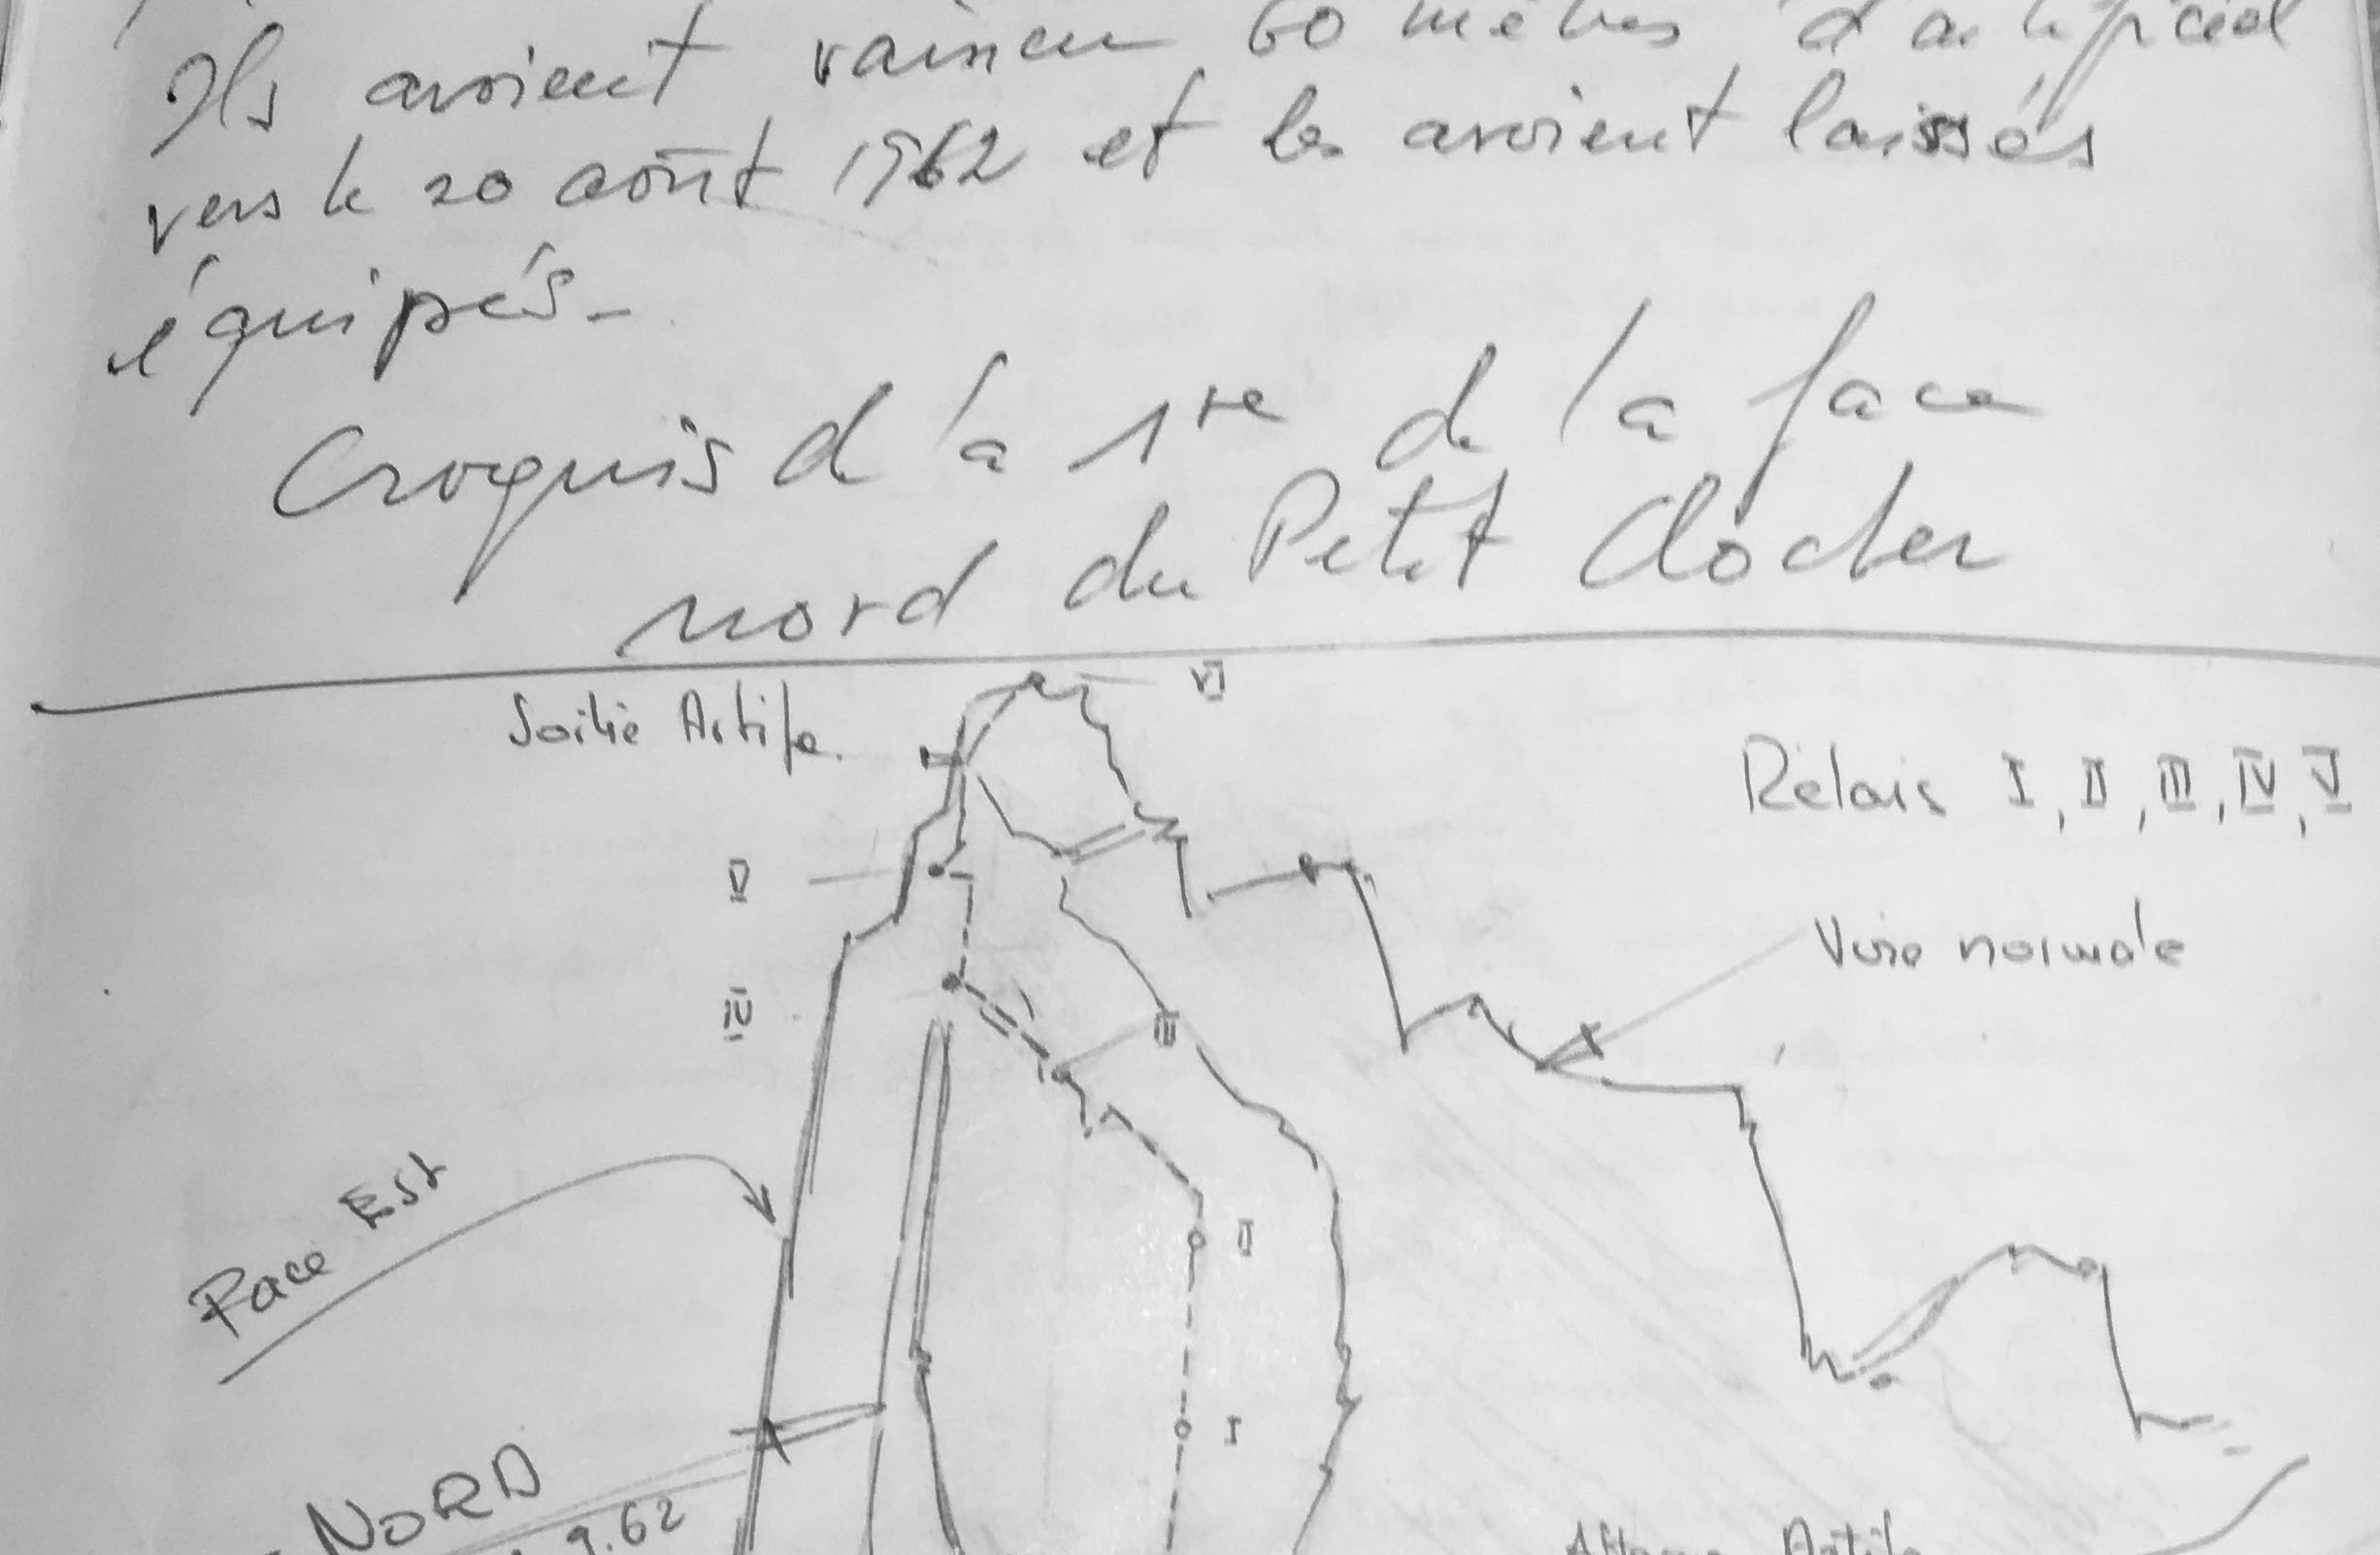 Ils avaient vaincu 60 mètres d'artificiel
vers le 20 août 1962 et les avaient laissés
équipés -
Croquis d la 1re de la face
nord du Petit Clocher
Sortie Artife.
VI
Relais I, II, III, IV, V
V
Voie normale
IV
III
Face Est
II
I
NORD
9.62
Attaque Artife